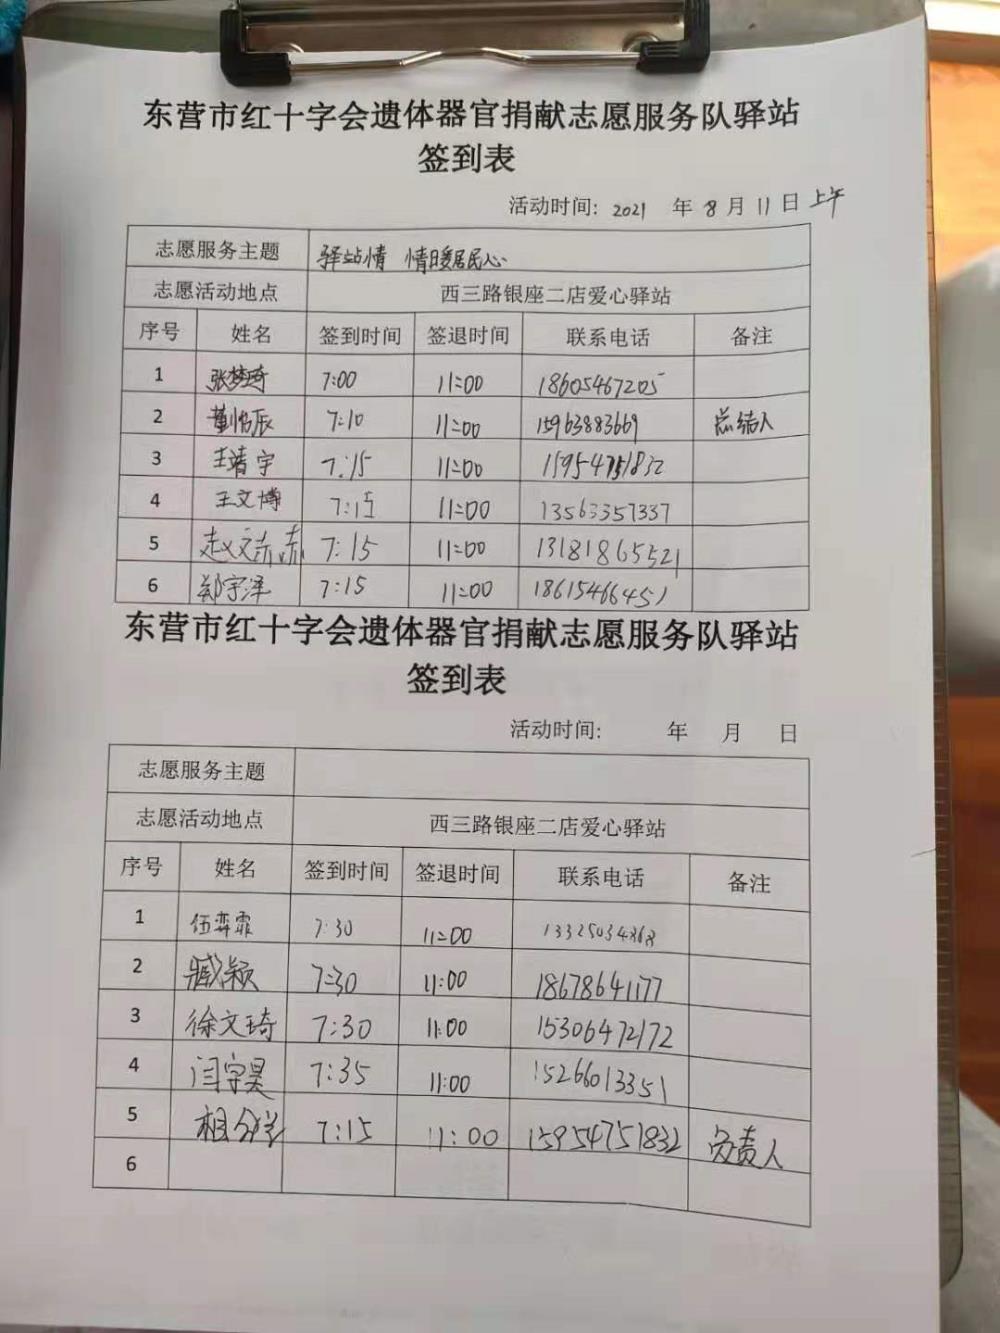 东营市红十字会遗体器官捐献志愿服务队驿站
签到表
活动时间: 2021 年 8 月 11 日 上午
志愿服务主题 驿站情 情暖居民心
志愿活动地点 西三路银座二店爱心驿站
序号 姓名 签到时间 签退时间 联系电话 备注
1 张梦琦 7:00 11:00 18605467205
2 董怡辰 7:10 11:00 15963883669 总结人
3 王靖宇 7:15 11:00 15954751832
4 王文博 7:15 11:00 13563357337
5 7:15 11:00 13181865521
6 郑宇泽 7:15 11:00 18615466451
东营市红十字会遗体器官捐献志愿服务队驿站
签到表
活动时间: 年 月 日
志愿服务主题
志愿活动地点 西三路银座二店爱心驿站
序号 姓名 签到时间 签退时间 联系电话 备注
1 伍弈霏 7:30 11:00
2 臧颖 7:30 11:00 18678641177
3 徐文琦 7:30 11:00 15306472172
4 闫宇昊 7:35 11:00 15266013351
5 7:15 11:00 15954751832 负责人
6